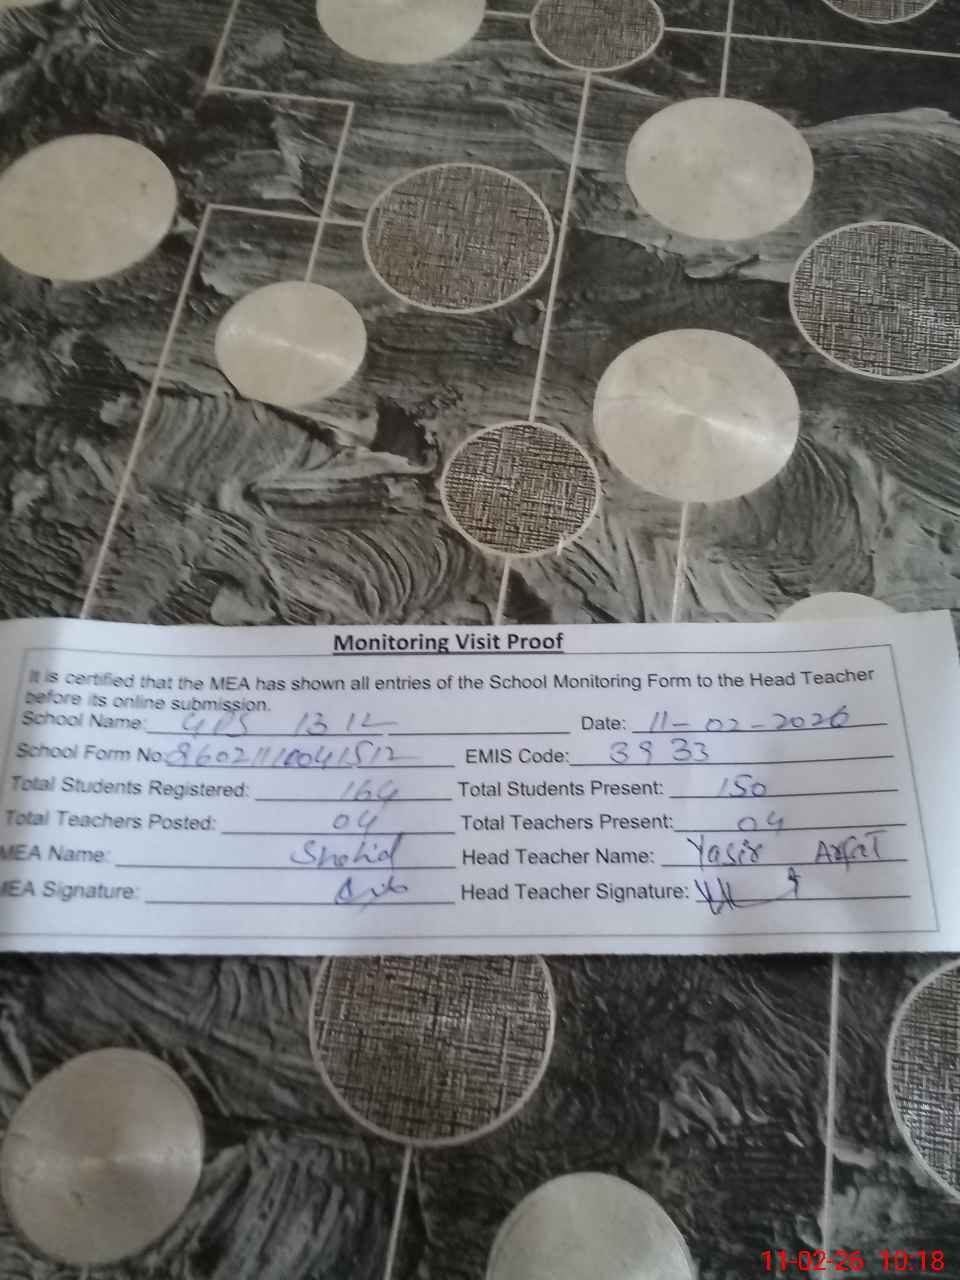 Monitoring Visit Proof
It is certified that the MEA has shown all entries of the School Monitoring Form to the Head Teacher
before its online submission.
School Name: GPS 13 1L Date: 11-02-2026
School Form No: EMIS Code: 3933
Total Students Registered: 164 Total Students Present: 150
Total Teachers Posted: 04 Total Teachers Present: 04
MEA Name: Shahid Head Teacher Name: Yasir Arfat
MEA Signature: Head Teacher Signature:
11-02-26 10:18